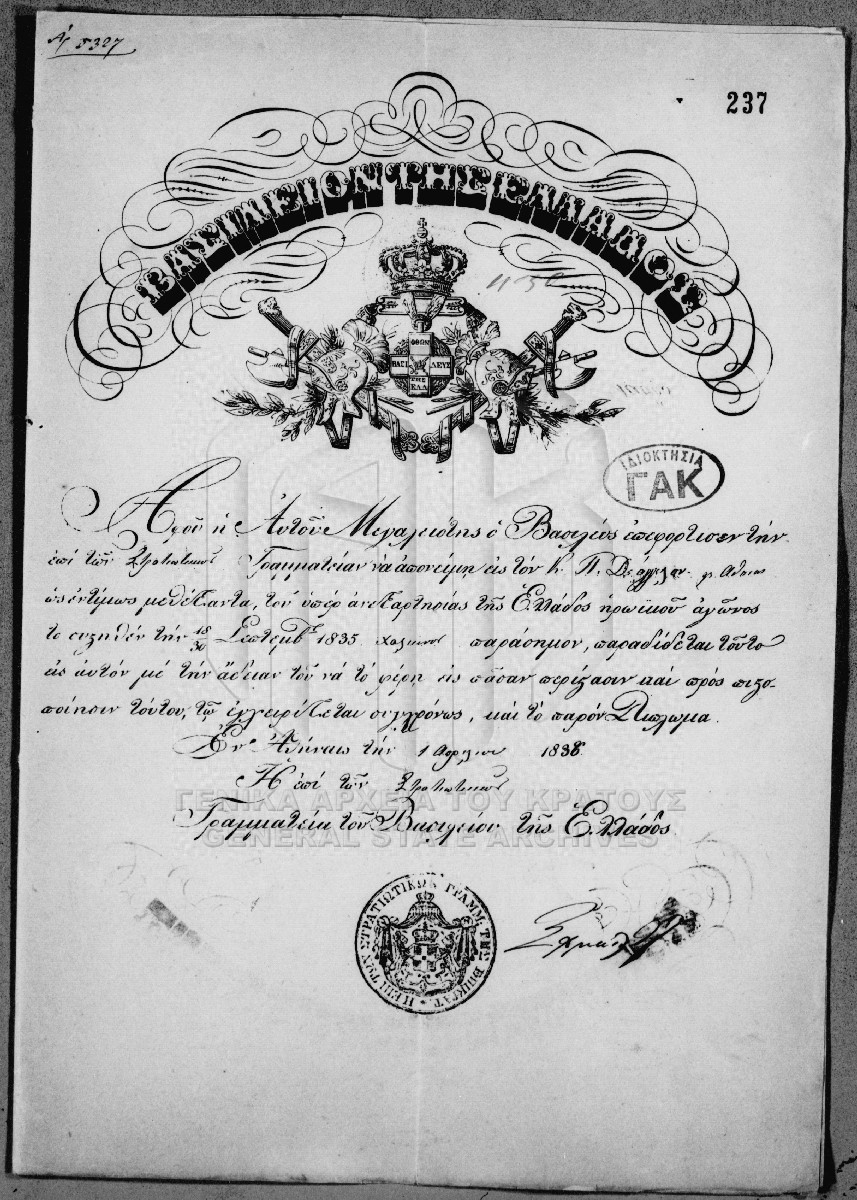 5327
237
ΒΑΣΙΛΕΙΟΝ ΤΗΣ ΕΛΛΑΔΟΣ
ΟΘΩΝ
ΒΑΣΙ ΛΕΥΣ
ΤΗΣ
ΕΛΛ
ΙΔΙΟΚΤΗΣΙΑ
ΓΑΚ
Αφοῦ ἡ Αὐτοῦ Μεγαλειότης ὁ Βασιλεὺς ἐπεφόρτισεν τὴν
ἐπὶ τῶν Στρατιωτικῶν Γραμματείαν νὰ ἀπονείμῃ εἰς τὸν Κ. Π.
ὡς ἐντίμως μεθέξαντα, τοῦ ὑπὲρ ἀνεξαρτησίας τῆς Ἑλλάδος ἡρωϊκοῦ ἀγῶνος
τὸ συστηθὲν τὴν 18/30 Σεπτεμβ. 1835 χαλκοῦν παράσημον, παραδίδεται τοῦτο
εἰς αὐτὸν μὲ τὴν ἄδειαν τοῦ νὰ τὸ φέρῃ εἰς πᾶσαν περίστασιν καὶ πρὸς πιστο-
ποίησιν τούτου, τῷ ἐγχειρίζεται συγχρόνως, καὶ τὸ παρὸν Δίπλωμα.
Ἐν Ἀθήναις τὴν 1 Απριλίου 1838
Ἡ ἐπὶ τῶν Στρατιωτικῶν
ΓΕΝΙΚΑ ΑΡΧΕΙΑ ΤΟΥ ΚΡΑΤΟΥΣ
Γραμματεία τοῦ Βασιλείου τῆς Ἑλλάδος.
GENERAL STATE ARCHIVES
Η ΕΠΙ ΤΩΝ ΣΤΡΑΤΙΩΤΙΚΩΝ ΓΡΑΜΜ: ΤΗΣ ΕΠΙΚΡΑΤ